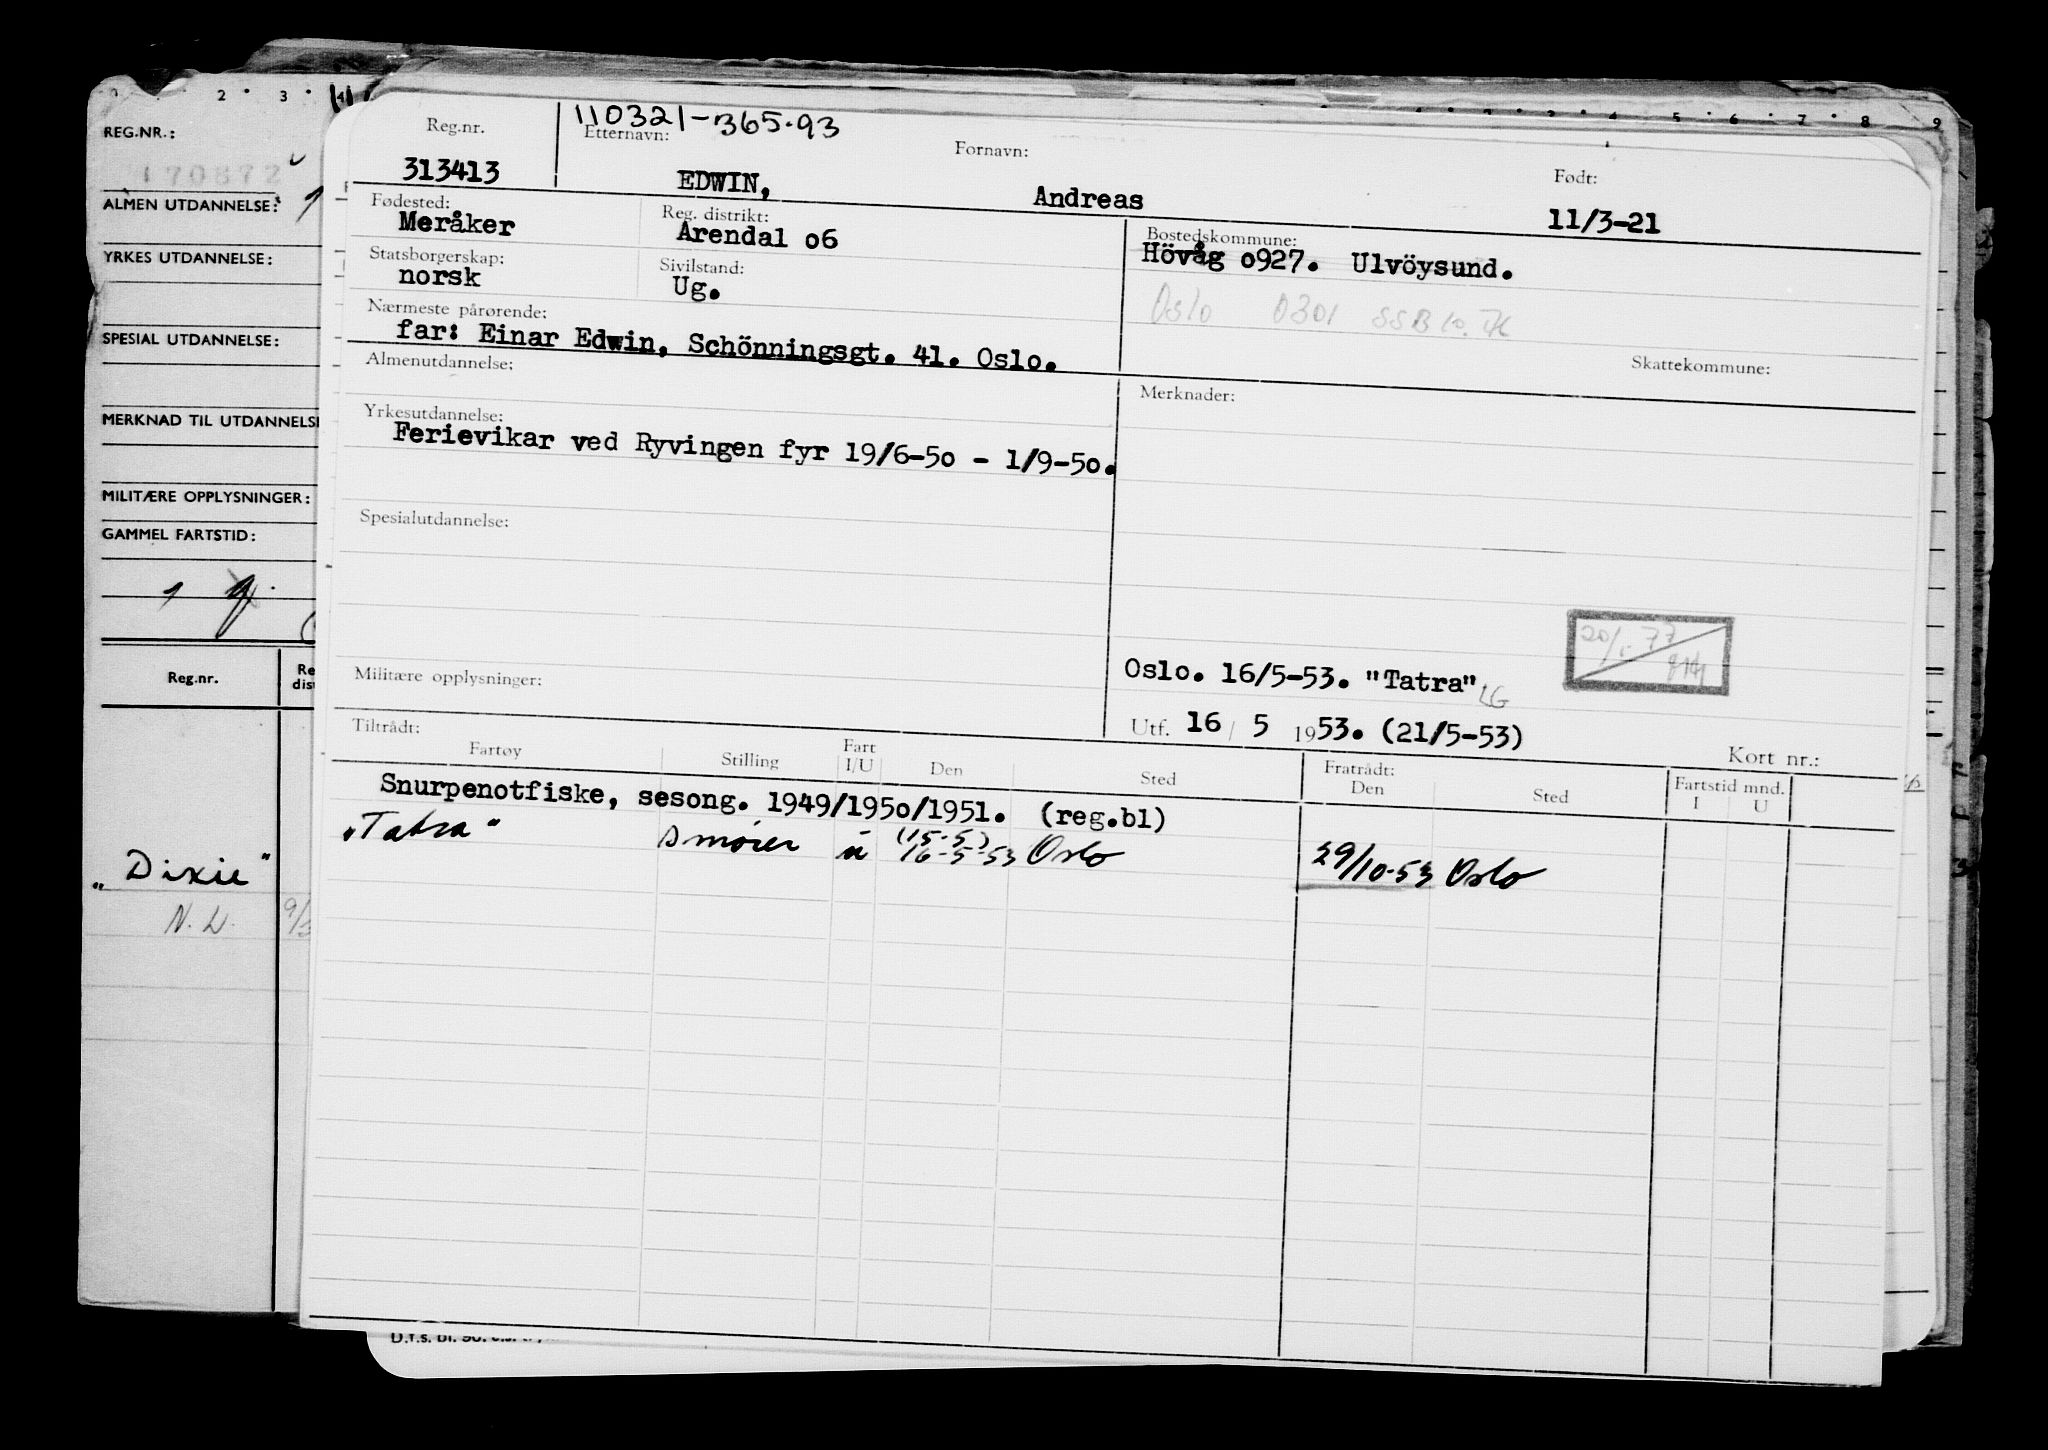 2 3 4
REG.NR.:
170872
ALMEN UTDANNELSE:
YRKES UTDANNELSE:
SPESIAL UTDANNELSE:
MERKNAD TIL UTDANNELSE
MILITÆRE OPPLYSNINGER:
GAMMEL FARTSTID:
Reg.nr.
Re
dist
„Dixie"
N.L.
5 6 7 8 9
110321-365.93
Reg.nr. Etternavn: Fornavn: Født:
313413 EDWIN, Andreas 11/3-21
Fødested: Reg. distrikt: Bostedskommune:
Meråker Arendal o6 Hövåg o927. Ulvöysund.
Statsborgerskap: Sivilstand:
norsk Ug.
Oslo 0301 SSB
Nærmeste pårørende:
far: Einar Edwin, Schönningsgt. 41. Oslo.
Skattekommune:
Almenutdannelse: Merknader:
Yrkesutdannelse:
Ferievikar ved Ryvingen fyr 19/6-5o - 1/9-5o.
Spesialutdannelse:
Militære opplysninger:
Oslo. 16/5-53. "Tatra" LG
Utf. 16 / 5 1953. (21/5-53)
Kort nr.:
Tiltrådt: Fratrådt: Fartstid mnd.
Fartøy Stilling Fart I/U Den Sted Den Sted I U
Snurpenotfiske, sesong. 1949/195o/1951. (reg.bl)
„Tatra" smører u (15-5) 16-5-53 Oslo 29/10-53 Oslo
D.f.s. bl. 90.